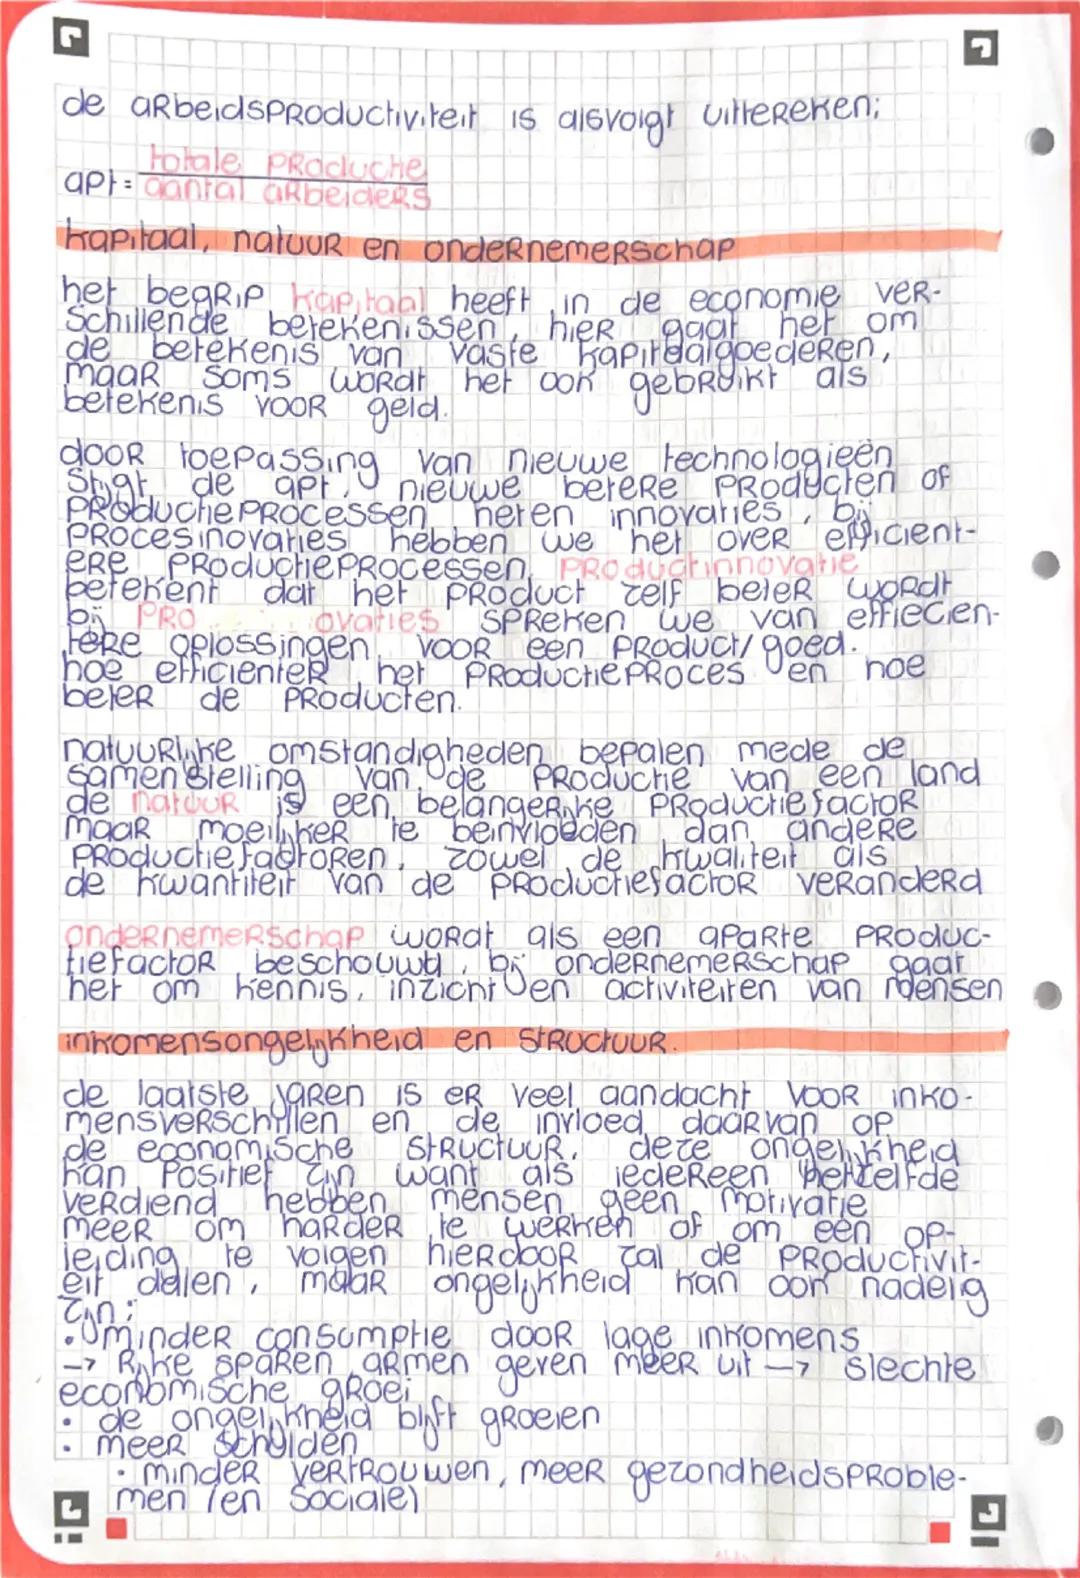 de arbeidsproductiviteit is alsvolgt uittereken;
totale productie
apt = aantal arbeiders
kapitaal, natuur en ondernemerschap
het begrip kapitaal heeft in de economie ver-
schillende betekenissen, hier gaat het om
de betekenis van vaste kapitaalgoederen,
maar soms wordt het ook gebruikt als
betekenis voor geld.
door toepassing van nieuwe technologieën
stijgt de apt, nieuwe betere producten of
productieprocessen heten innovaties, bij
procesinovaties hebben we het over efficient-
ere productieprocessen, productinnovatie
betekent dat het product zelf beter wordt
bij pro ovaties spreken we van effiecien-
tere oplossingen voor een product/goed.
hoe efficienter het productieproces en hoe
beter de producten.
natuurlijke omstandigheden bepalen mede de
samenstelling van de productie van een land
de natuur is een belangerijke productiefactor
maar moeilijker te beinvloeden dan andere
productiefactoren, zowel de kwaliteit als
de kwantiteit van de productiefactor veranderd
ondernemerschap wordt als een aparte produc-
tiefactor beschouwd, bij ondernemerschap gaat
het om kennis, inzicht en activiteiten van mensen
inkomensongelijkheid en structuur.
de laatste jaren is er veel aandacht voor inko-
mensverschillen en de invloed daarvan op
de economische structuur, deze ongelijkheid
kan positief zijn want als iedereen hetzelfde
verdiend hebben mensen geen motivatie
meer om harder te werken of om een op-
leiding te volgen hierdoor zal de productivit-
eit dalen, maar ongelijkheid kan ook nadelig
zijn:
• minder consumptie door lage inkomens
→ Rijke sparen armen geven meer uit → slechte
economische groei
• de ongelijkheid blijft groeien
• meer schulden
• minder vertrouwen, meer gezondheidsproble-
men (en sociale)